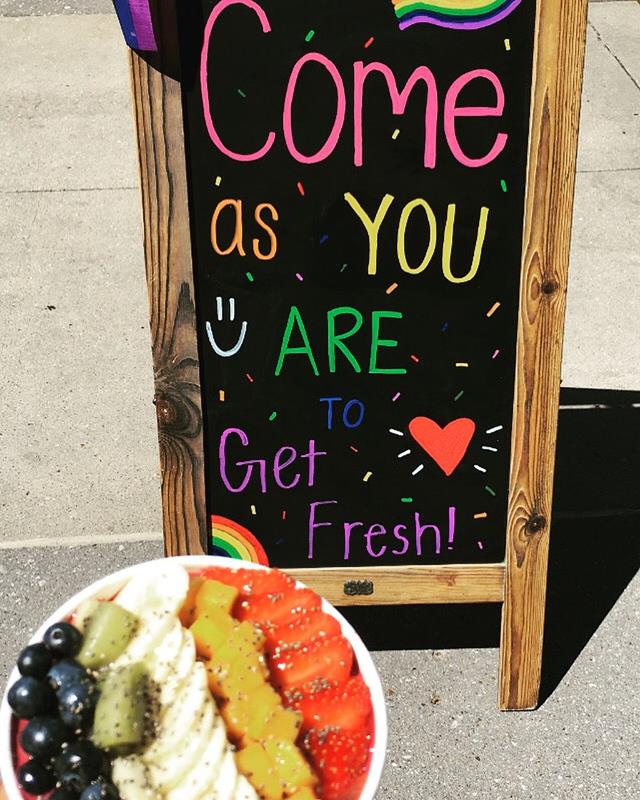 Come
as YOU
ARE
TO
Get
Fresh!